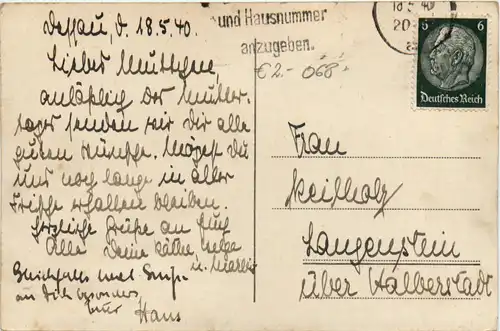 Dessau, d. 18.5.40.
Liebes Muttchen,
anläßlich des Mutter-
tages senden wir Dir alle
guten Wünsche. Mögest Du
uns noch lange in alter
Frische erhalten bleiben.
Herzliche Grüße an Euch
Alle Deine Käthe, Helga
u.
Gleichfalls viel Grüße
an Dich besonders
Hans
und Hausnummer
anzugeben.
€ 2.- 068
18.5.40
20
6 6
Deutsches Reich
Frau
Keilholz
Langenstein
über Halberstadt